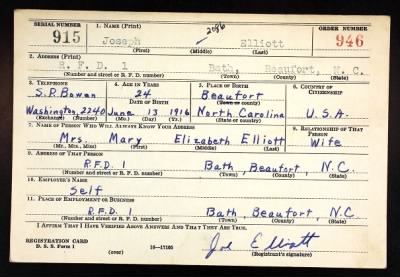 SERIAL NUMBER 1. NAME (Print) ORDER NUMBER
915 Joseph Elliott 946
(First) (Middle) (Last)
2. ADDRESS (Print)
R. F. D. 1 Bath, Beaufort, N. C.
(Number and street or R. F. D. number) (Town) (County) (State)
3. TELEPHONE 4. AGE IN YEARS 5. PLACE OF BIRTH 6. COUNTRY OF CITIZENSHIP
S.R. Bowen 24 Beaufort
DATE OF BIRTH (Town or county)
Washington, 2240 June 13 1916 North Carolina U.S.A.
(Exchange) (Number) (Mo.) (Day) (Yr.) (State or country)
7. NAME OF PERSON WHO WILL ALWAYS KNOW YOUR ADDRESS 8. RELATIONSHIP OF THAT PERSON
Mrs. Mary Elizabeth Elliott Wife
(Mr., Mrs., Miss) (First) (Middle) (Last)
9. ADDRESS OF THAT PERSON
R.F.D. 1 Bath, Beaufort, N.C.
(Number and street or R. F. D. number) (Town) (County) (State)
10. EMPLOYER'S NAME
Self
11. PLACE OF EMPLOYMENT OR BUSINESS
R.F.D. 1 Bath, Beaufort, N.C
(Number and street or R. F. D. number) (Town) (County) (State)
I AFFIRM THAT I HAVE VERIFIED ABOVE ANSWERS AND THAT THEY ARE TRUE.
REGISTRATION CARD
D. S. S. Form 1 (over) 16—17105 Joe Elliott
(Registrant's signature)